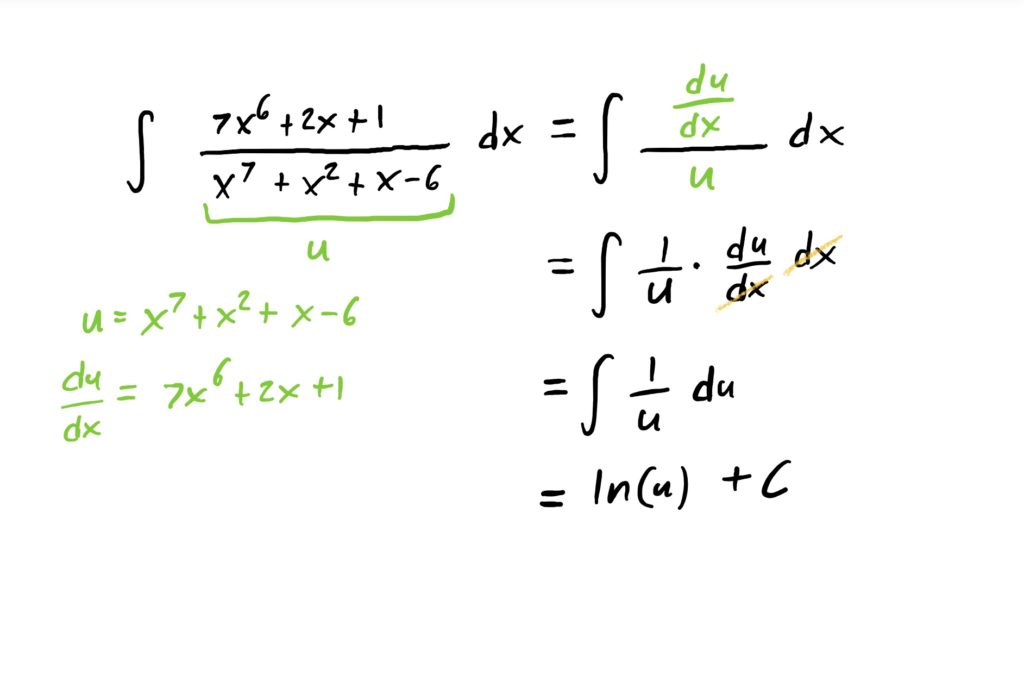 ∫ (7x⁶ + 2x + 1)/(x⁷ + x² + x − 6) dx = ∫ (du/dx)/u dx
u
= ∫ 1/u · du/dx dx
u = x⁷ + x² + x − 6
du/dx = 7x⁶ + 2x + 1
= ∫ 1/u du
= ln(u) + C